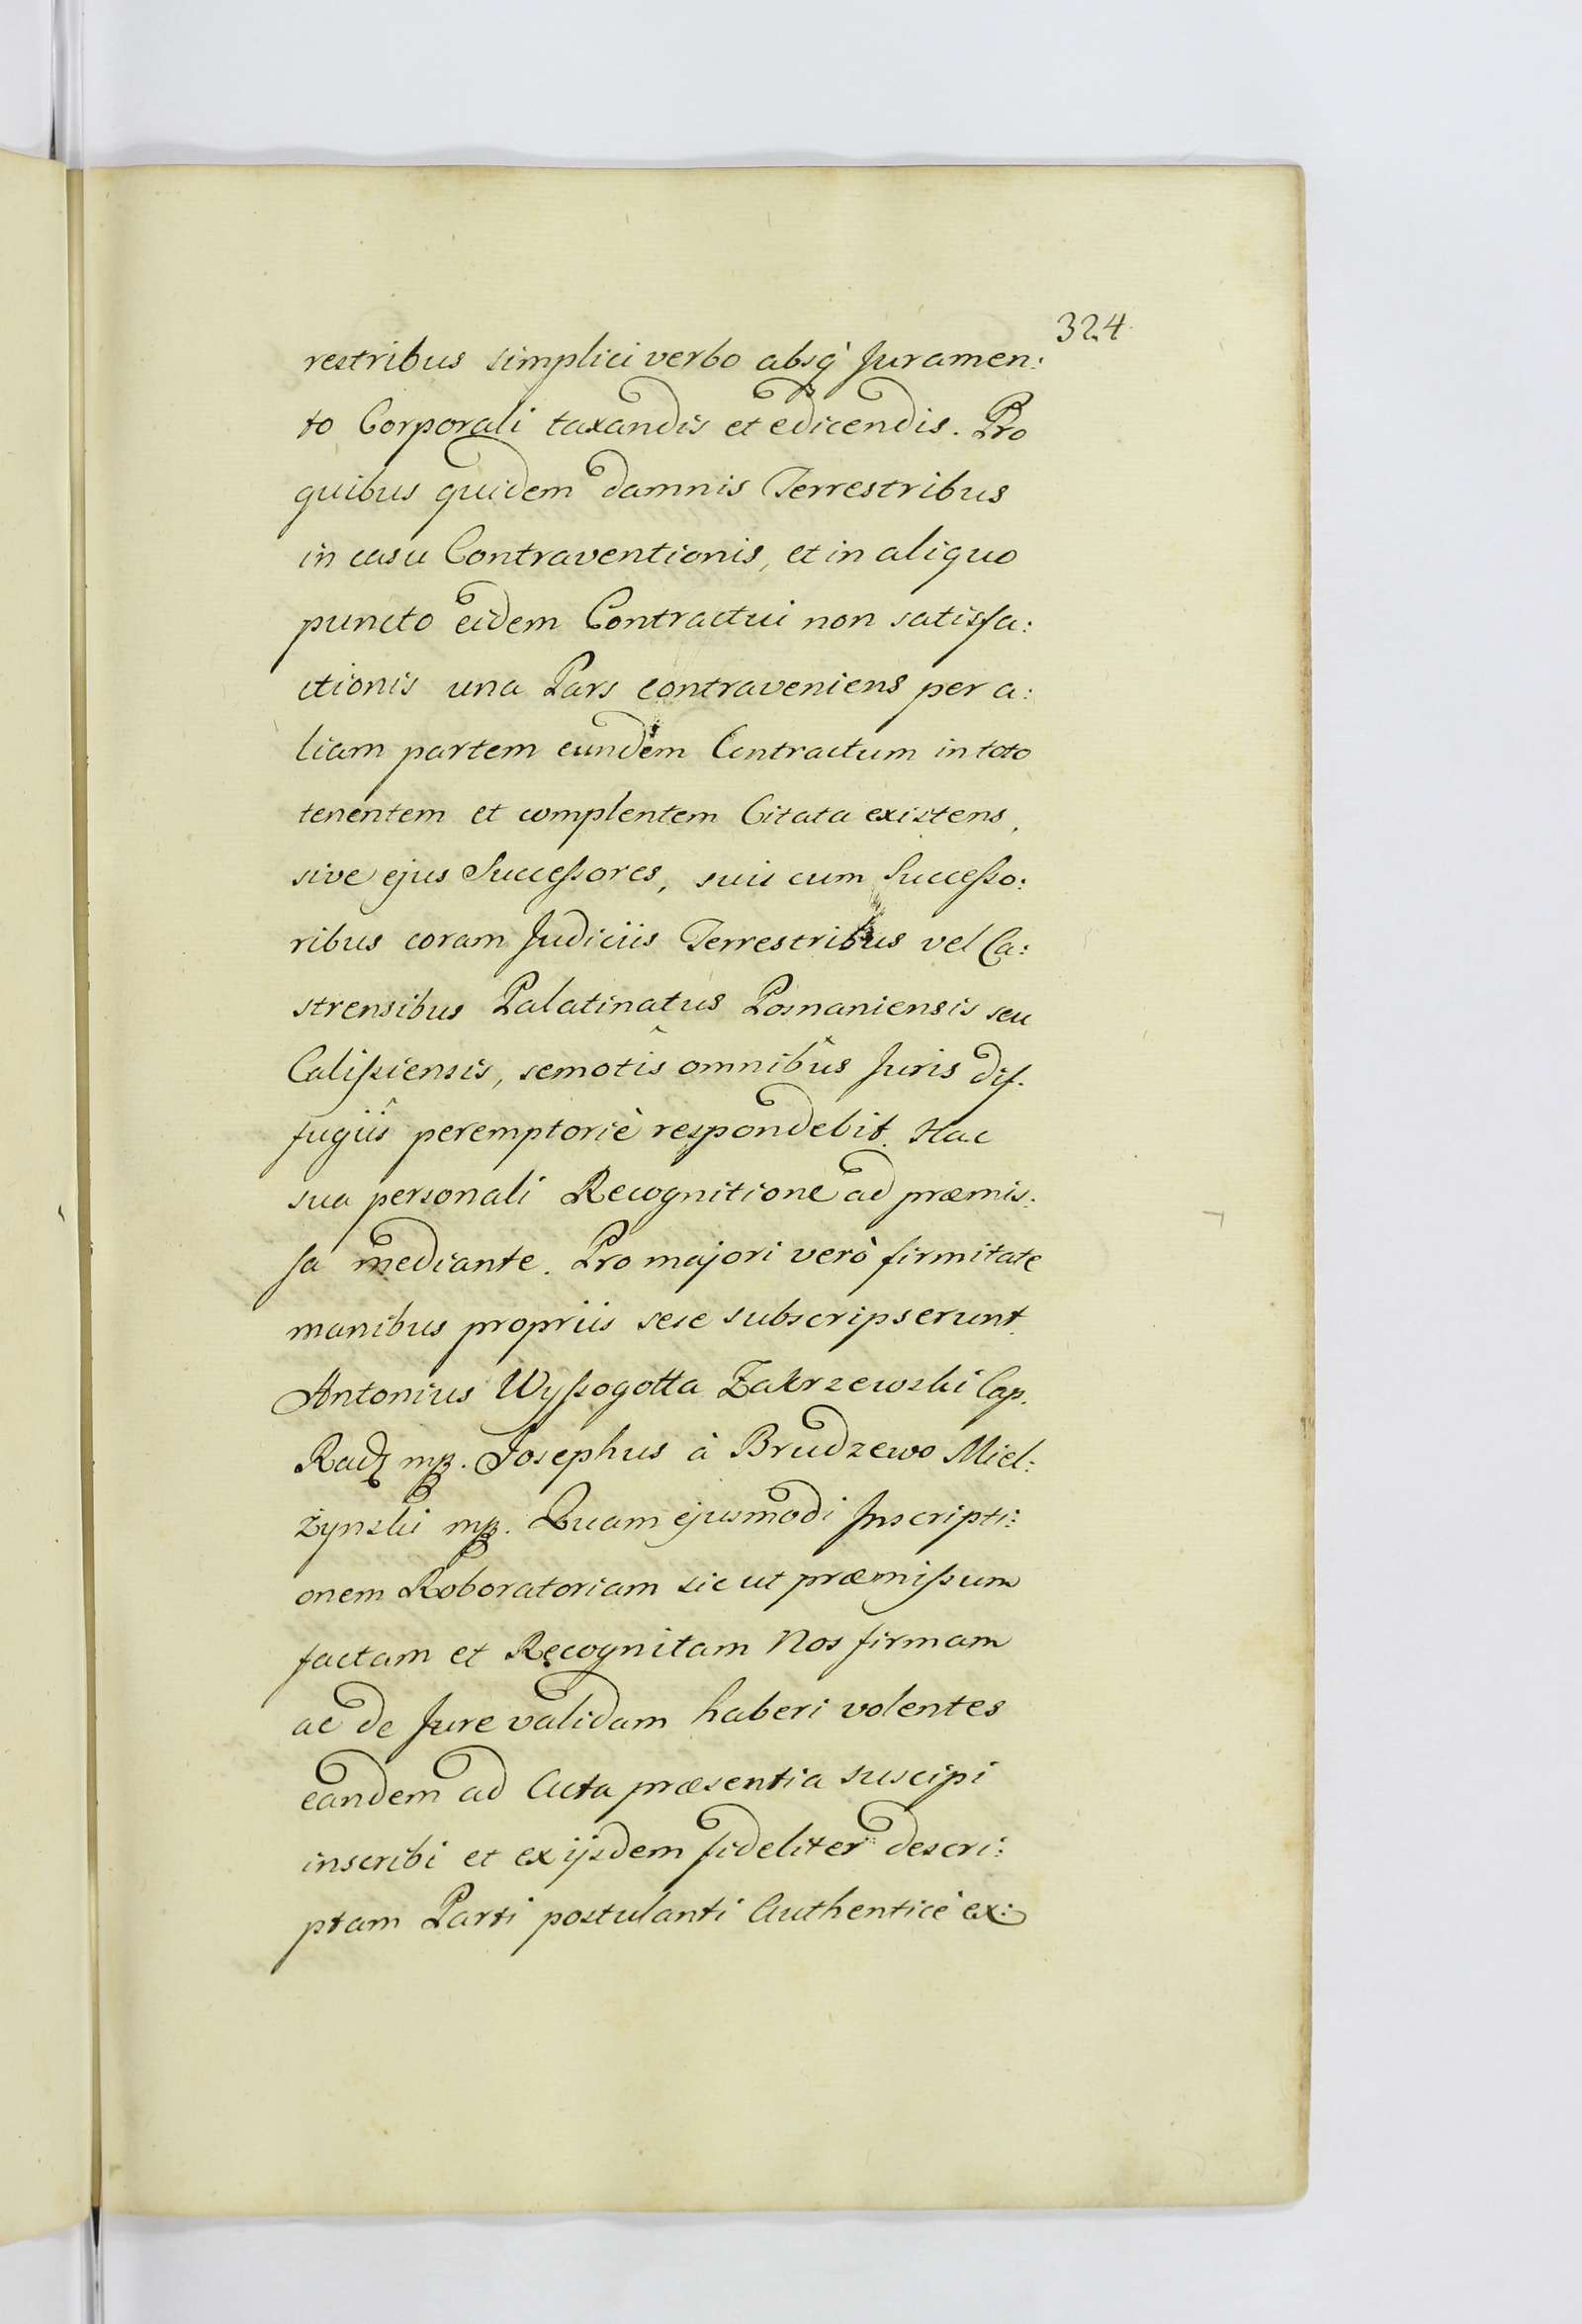 324
restribus simplici verbo absq̀ Juramen:
to Corporali taxandis et edicendis. Pro
quibus quidem damnis Terrestribus
in casu Contraventionis, et in aliquo
puncto eidem Contractui non satisfa:
ctionis una Pars contraveniens per a:
liam partem eundem Contractum in toto
tenentem et complentem Citata existens,
sive ejus Succeſsores, suis cum Succeſso:
ribus coram Judiciis Terrestribus vel Ca:
strensibus Palatinatus Posnaniensis seu
Caliſsiensis, semotîs omnibûs Juris dif.
fugiîs peremptoriè respondebit. Hac
sua personali Recognitione ad præmis:
sa mediante. Pro majori verò firmitate
manibus propriis sese subscripserunt.
Antonius Wyſsogotta Zakrzewski Cap.
Radz mp. Josephus à Brudzewo Miel:
żynski mp. Quam ejusmodi Inscripti:
onem Roboratoriam sic ut præmiſsum
factam et Recognitam Nos firmam
ac de Jure validam haberi volentes
eandem ad Acta præsentia suscipi
inscribi et ex ijsdem fideliter descri:
ptam Parti postulanti Authenticè ex: